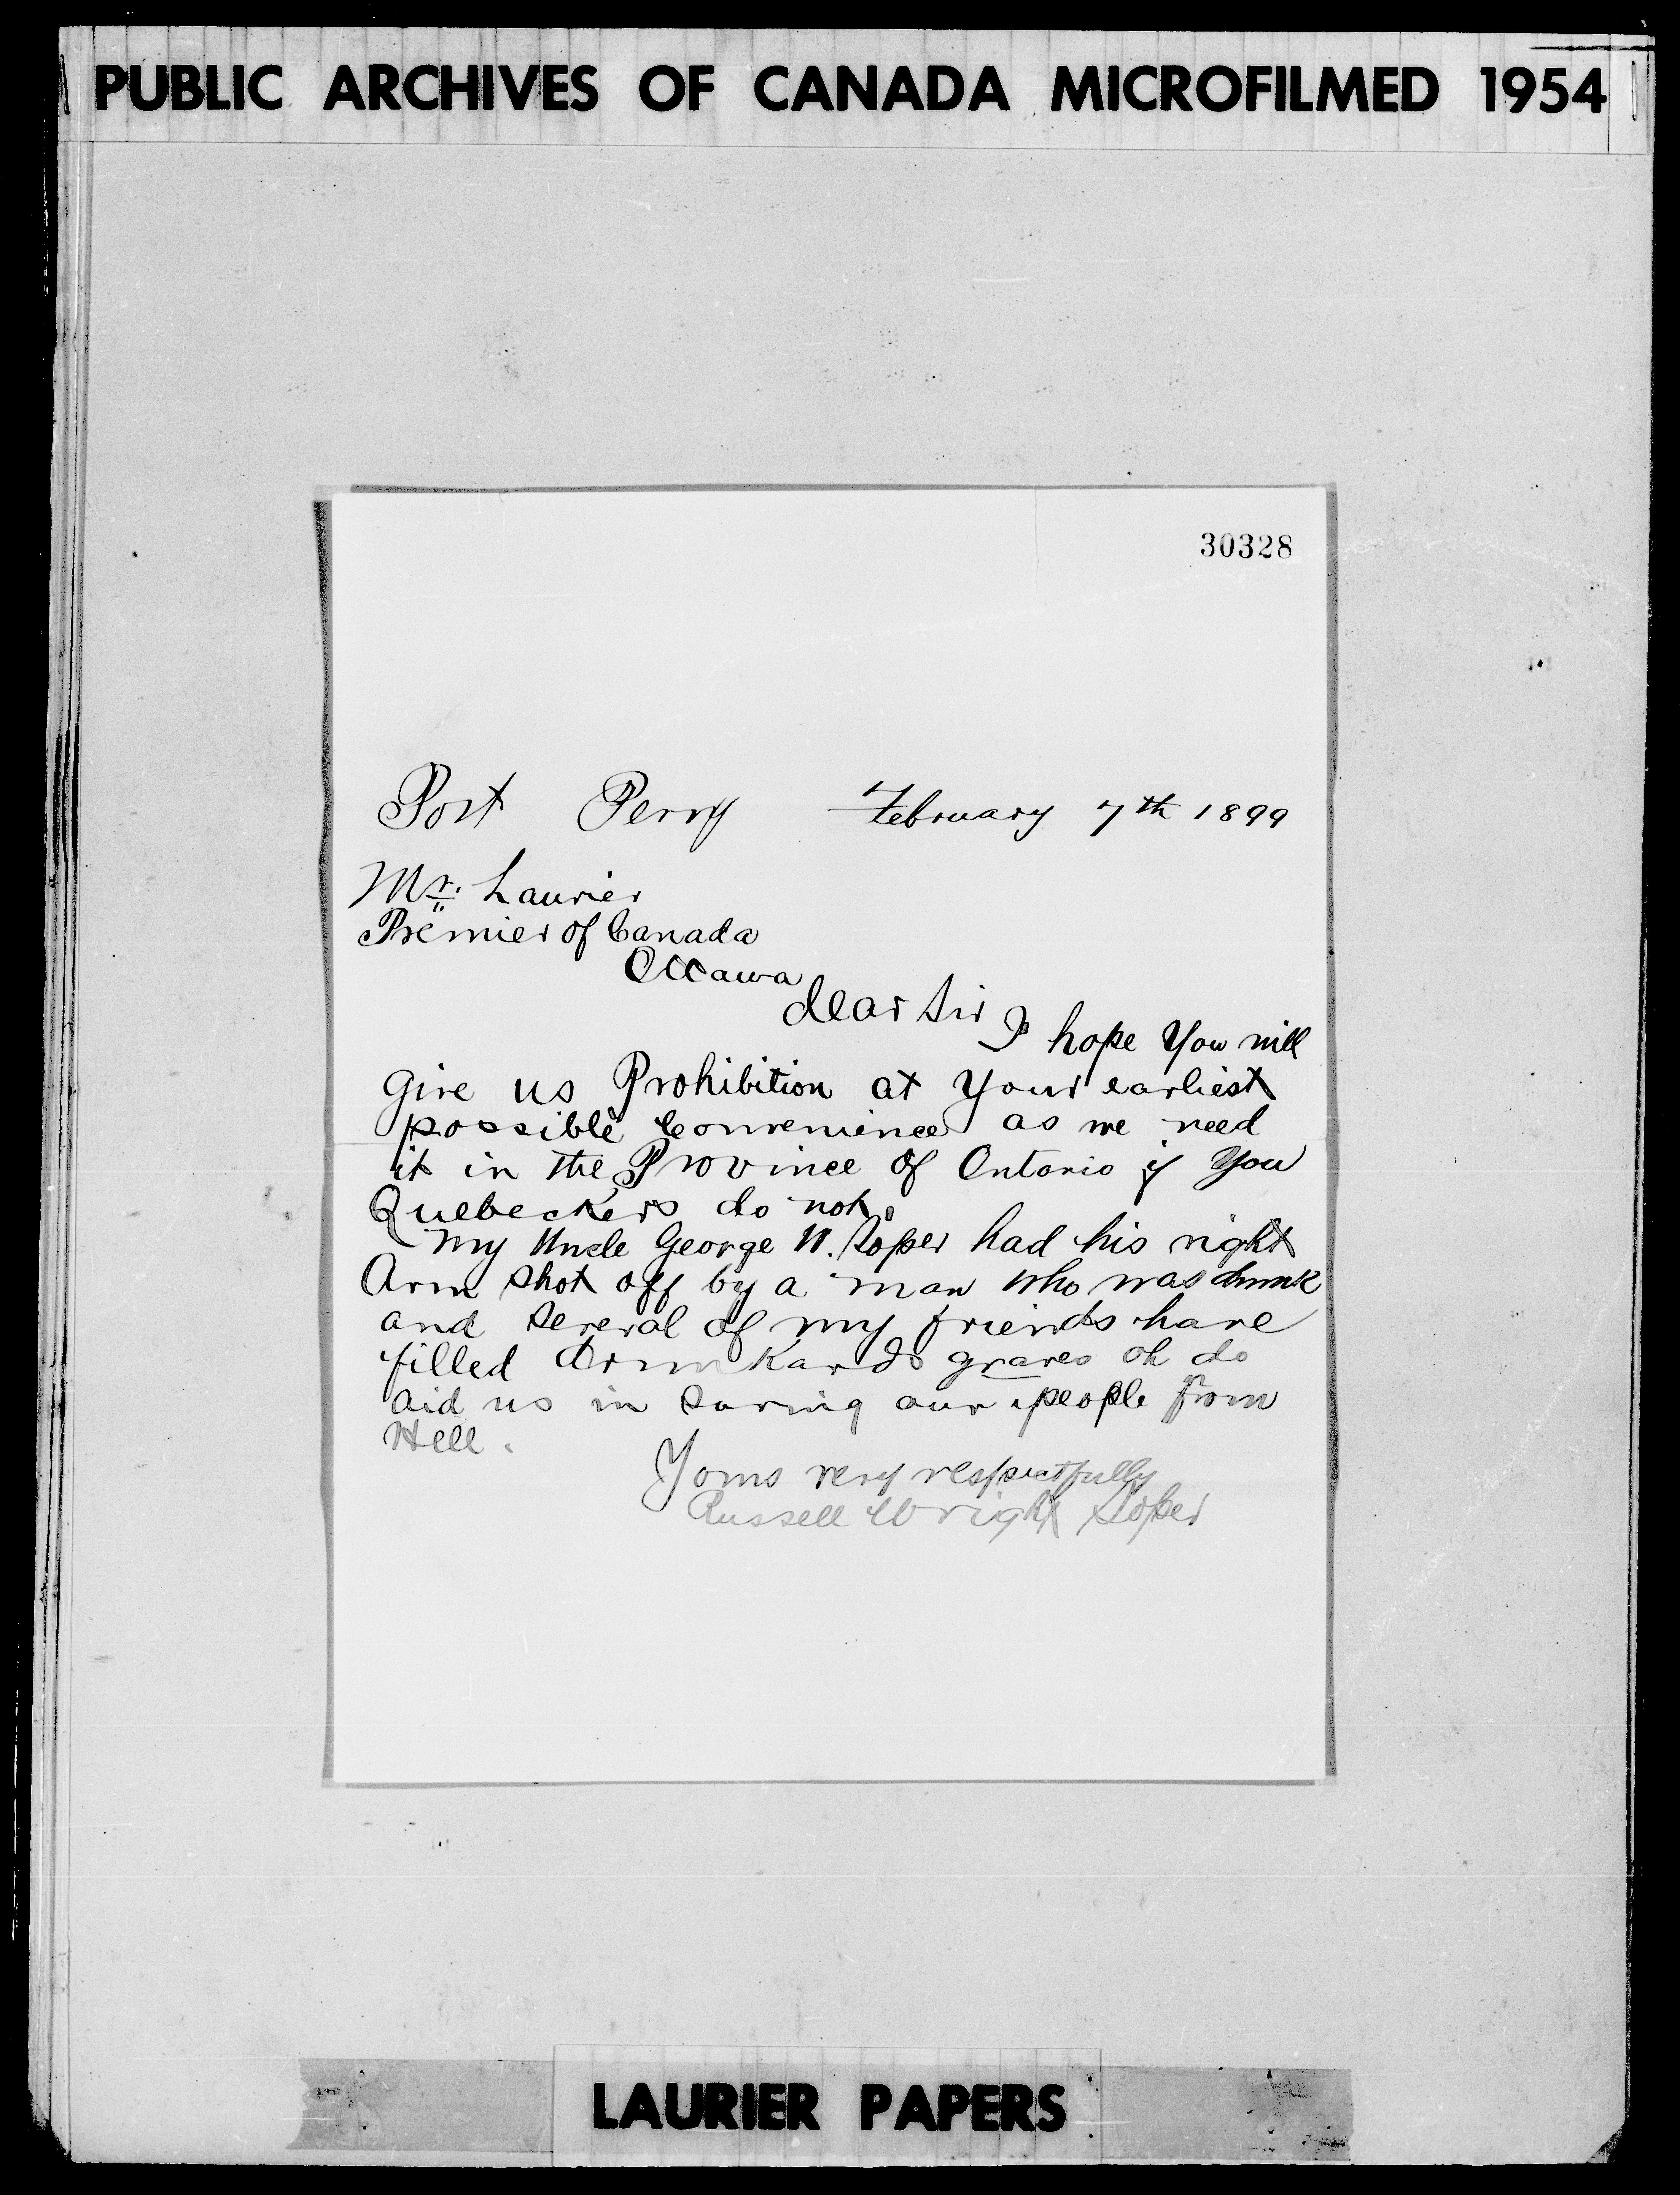 PUBLIC ARCHIVES OF CANADA MICROFILMED 1954
30328
Port Perry February 7th 1899
Mr. Laurier
Premier of Canada
Ottawa
dear Sir
I hope You will
give us Prohibition at Your earliest
possible Convenience as we need
it in the Province of Ontario if You
Quebeckers do not.
My Uncle George W. Soper had his right
Arm shot off by a man who was drunk
and several of my friends have
filled drunkards graves oh do
aid us in saving our people from
Hell.
Yours very respectfully
Russell Wright Soper
LAURIER PAPERS